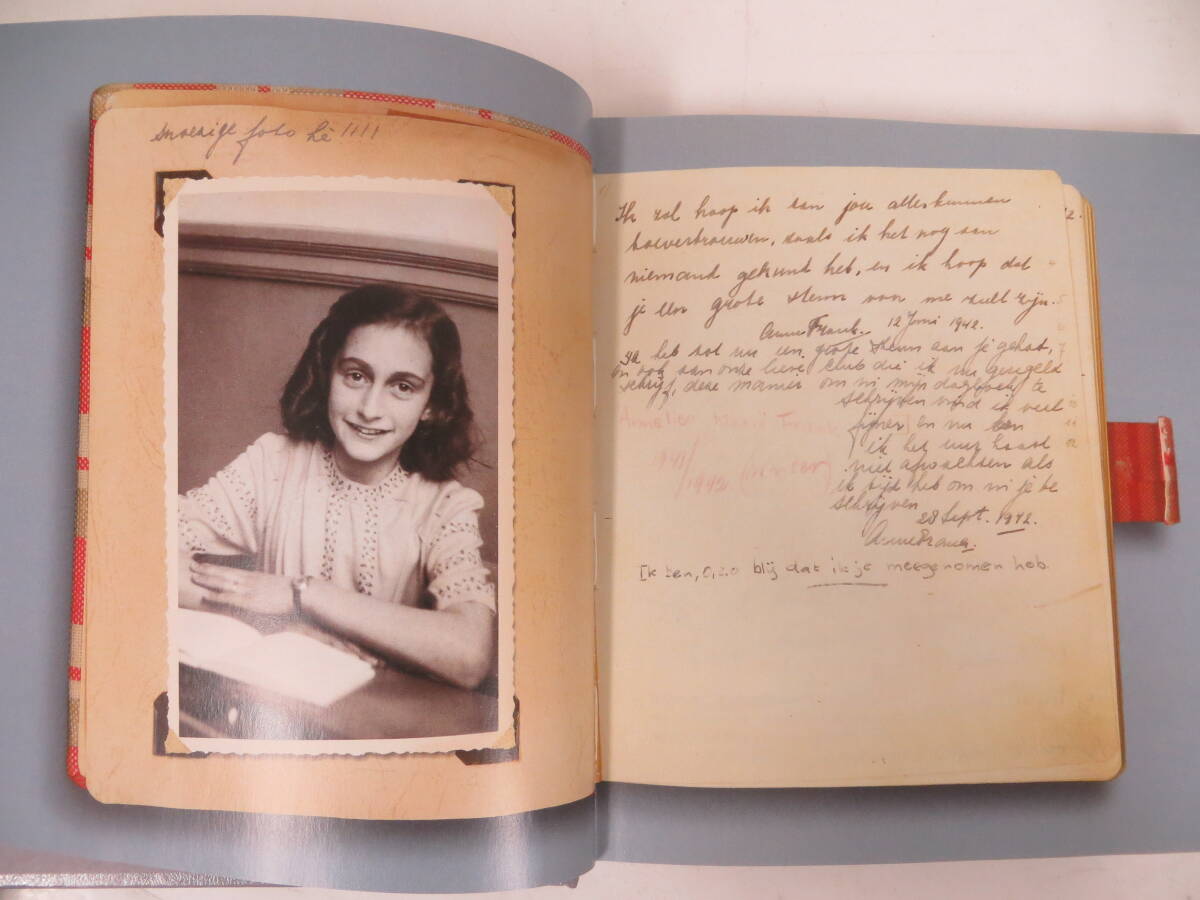 snoezige foto hè!!!!
Ik zal hoop ik aan jou alles kunnen
toevertrouwen, zoals ik het nog aan
niemand gekund heb, en ik hoop dat
je een grote steun van me zult zijn.
Anne Frank. 12 Juni 1942.
Ik heb tot nu een grote steun aan je gehat,
en ook aan onze lieve club die ik nu geregeld
schrijf, deze manier om in mijn dagboek te
schrijven vind ik veel
fijner en nu kan
ik het uur haast
niet afwachten als
ik tijd heb om in je te
schrijven
28 Sept. 1942.
Anne Frank.
Ik ben, o, zo blij dat ik je meegenomen heb.